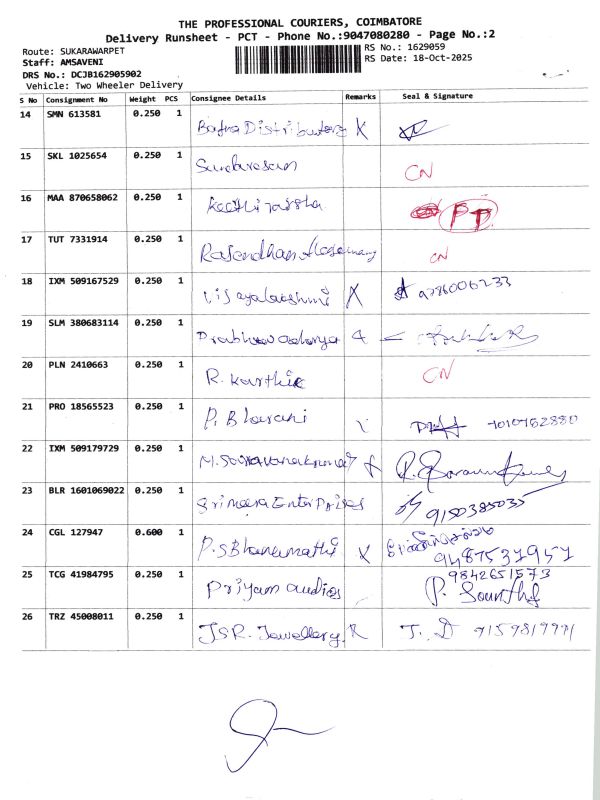 THE PROFESSIONAL COURIERS, COIMBATORE
Delivery Runsheet - PCT - Phone No.:9047080280 - Page No.:2
Route: SUKARAWARPET
RS No.: 1629059
Staff: AMSAVENI
RS Date: 18-Oct-2025
DRS No.: DCJB162905902
Vehicle: Two Wheeler Delivery
S No Consignment No Weight PCS Consignee Details Remarks Seal & Signature
14 SMN 613581 0.250 1 Distributors X
15 SKL 1025654 0.250 1 Sundaresan CN
16 MAA 870658062 0.250 1 PT
17 TUT 7331914 0.250 1 CN
18 IXM 509167529 0.250 1 Vijayalakshmi X 9786006233
19 SLM 380683114 0.250 1
20 PLN 2410663 0.250 1 R. Karthik CN
21 PRO 18565523 0.250 1 P. Bharani 7010762880
22 IXM 509179729 0.250 1 M. Saravanakumar
23 BLR 1601069022 0.250 1 Sri Meera EnterPrises 9150385035
24 CGL 127947 0.600 1 P.S Bhanumathi X
9487531951
25 TCG 41984795 0.250 1 Priyam audios 9842651573
26 TRZ 45008011 0.250 1 JSR. Jewellery X J. D 9159819991